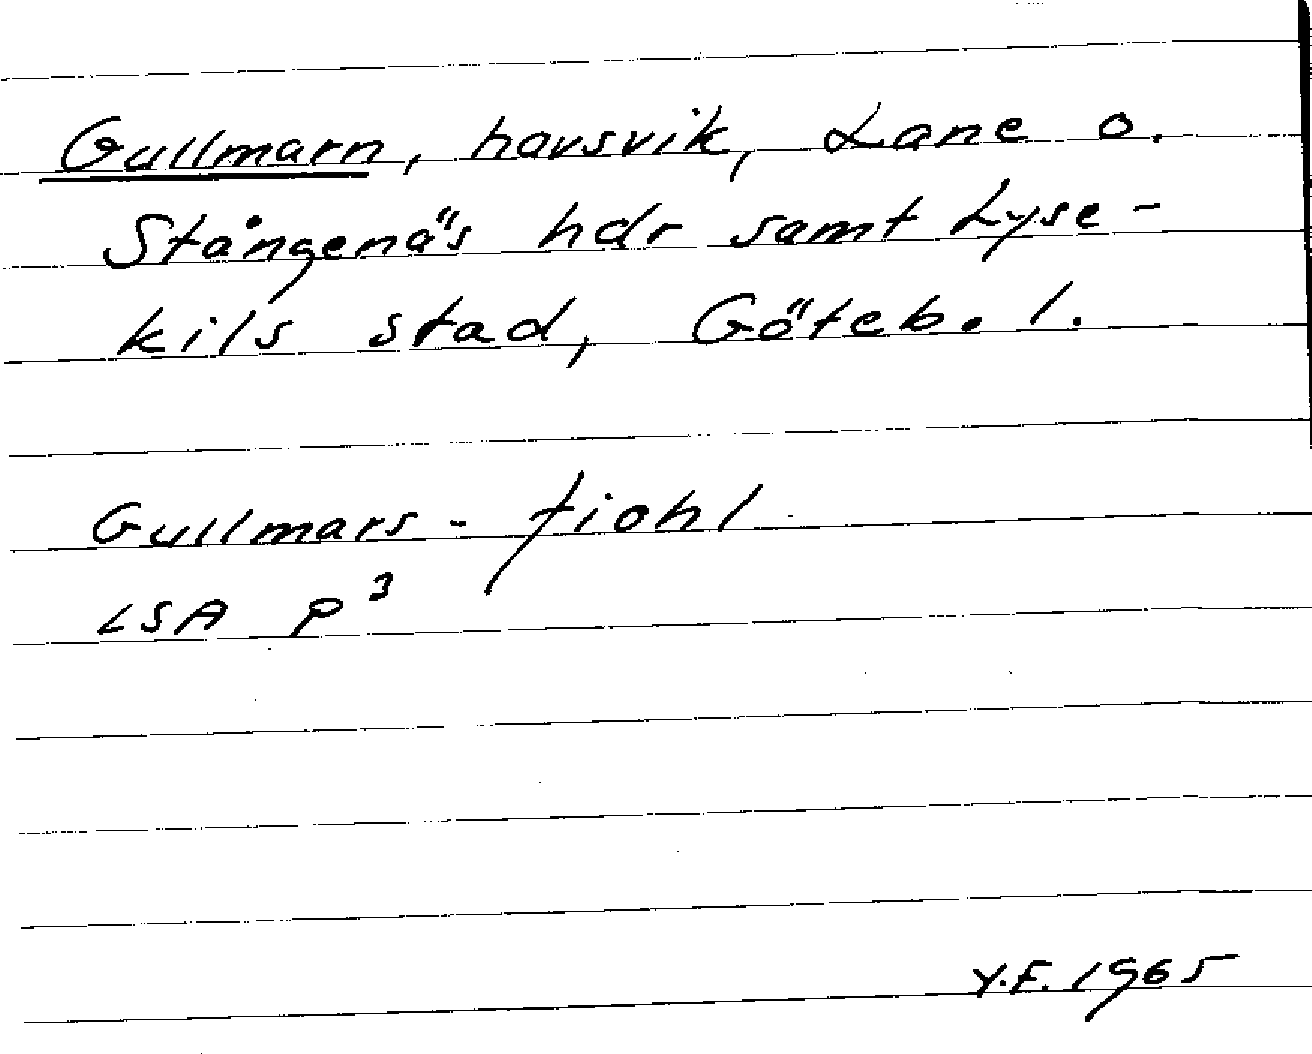 Gullmarn, havsvik, Lane o.
Stångenäs hdr samt Lyse-
kils stad, Göteb. l.
Gullmars - fiohl
LSA P³
Y.F. 1965